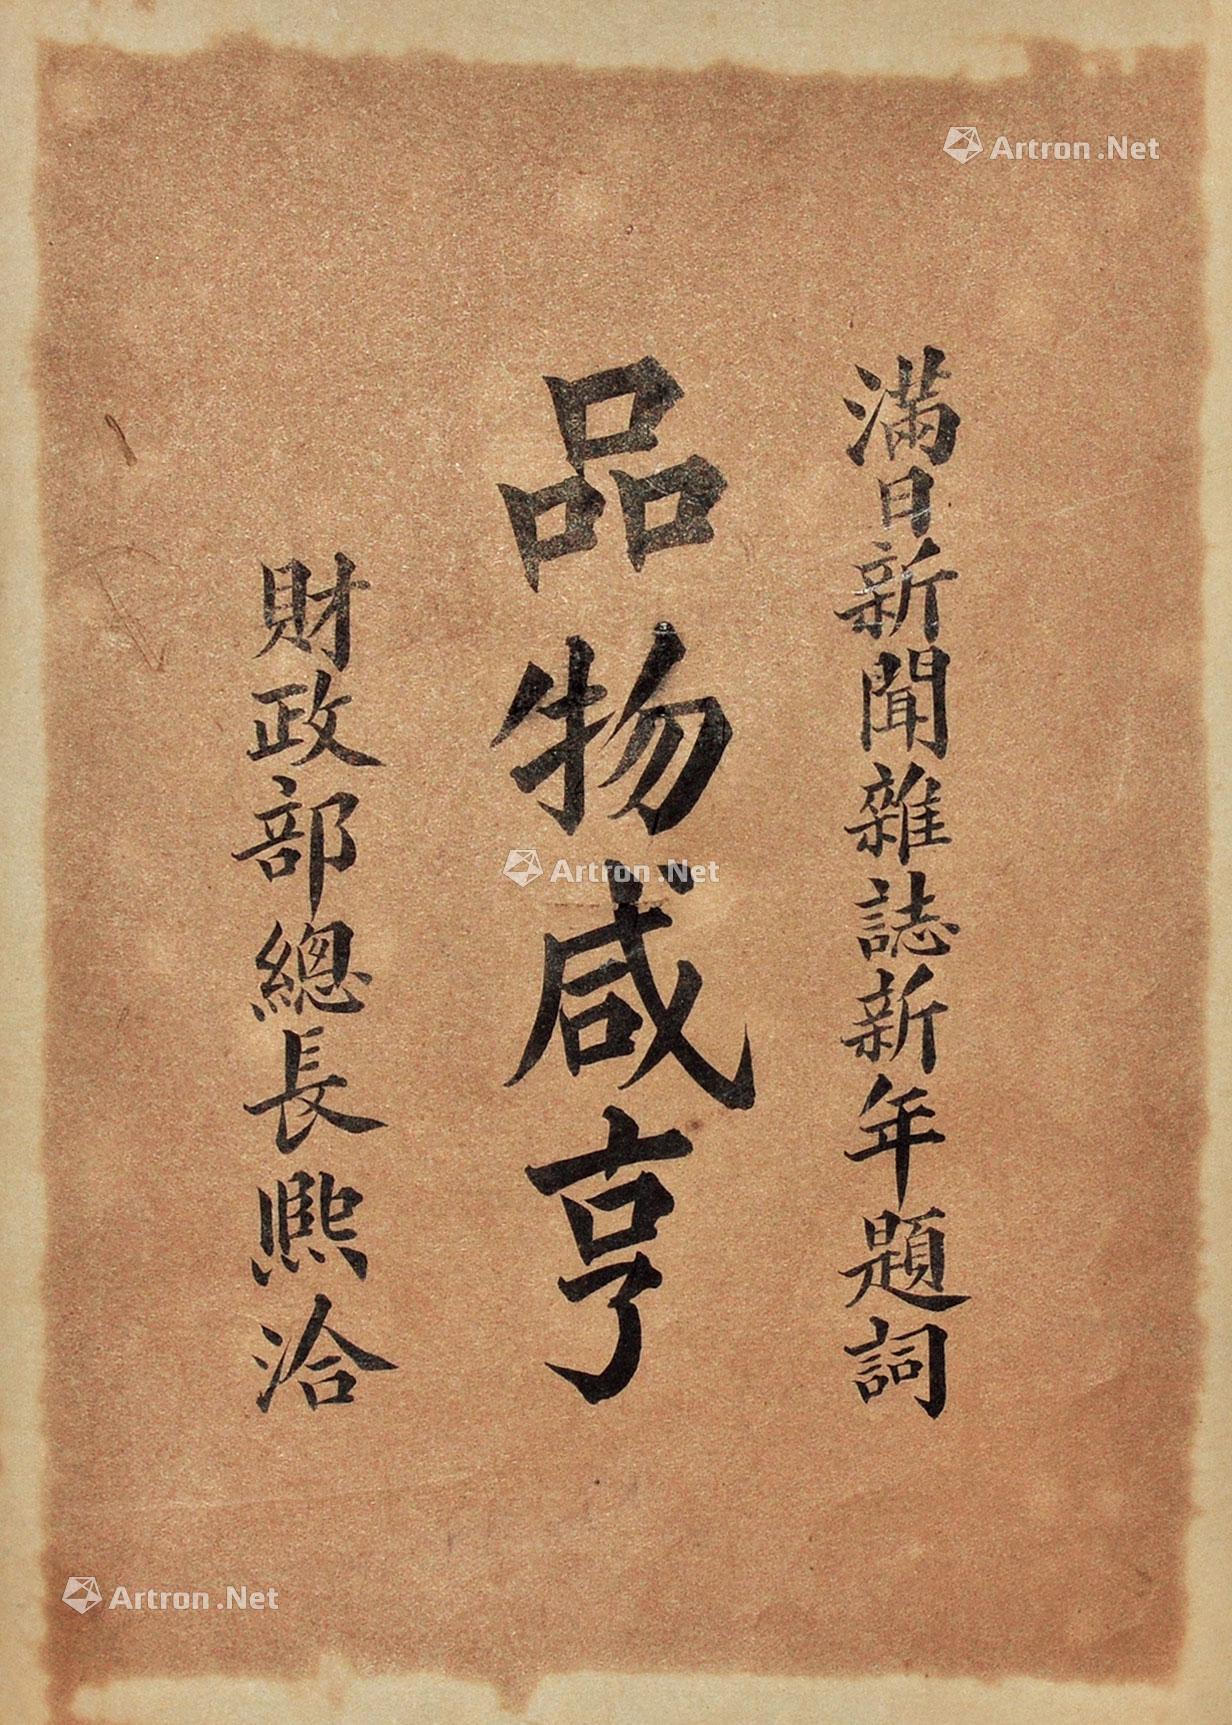 滿日新聞雜誌新年題詞
品物咸亨
財政部總長熙洽
Artron.Net
Artron.Net
Artron.Net